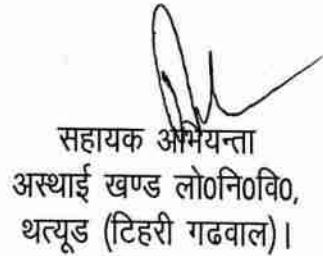 सहायक अभियन्ता
अस्थाई खण्ड लो0नि0वि0,
थत्यूड (टिहरी गढवाल)।